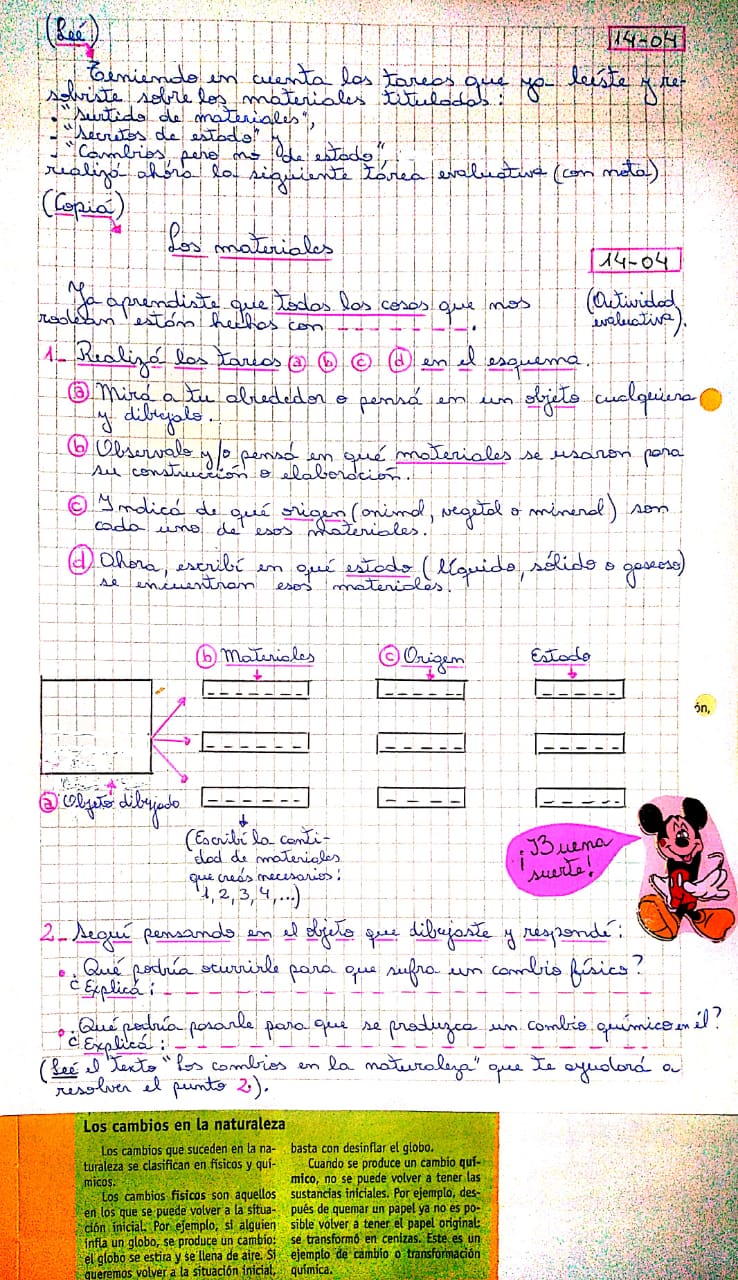 (Leé)
14-04
Teniendo en cuenta las tareas que ya leíste y re-
solviste sobre los materiales tituladas:
- "Surtido de materiales",
- "Secretos de estado" y
- "Cambios, pero no de estado",
realizá ahora la siguiente tarea evaluativa (con nota)
(Copiá)
Los materiales
14-04
(Actividad
evaluativa).
Ya aprendiste que todas las cosas que nos
rodean están hechas con _ _ _ _ _ _ _.
1_ Realizá las tareas a b c d en el esquema.
a Mirá a tu alrededor o pensá en un objeto cualquiera
y dibujalo.
b Observalo y/o pensá en qué materiales se usaron para
su construcción o elaboración.
c Indicá de qué origen (animal, vegetal o mineral) son
cada uno de esos materiales.
d Ahora, escribí en qué estado (líquido, sólido o gaseoso)
se encuentran esos materiales.
b Materiales
c Origen
Estado
ón,
a Objeto dibujado
(Escribí la canti-
dad de materiales
que creás necesarios:
1, 2, 3, 4, ...)
¡Buena
suerte!
2_ Seguí pensando en el objeto que dibujaste y respondé:
• ¿Qué podría ocurrirle para que sufra un cambio físico?
Explicá: _ _ _ _ _ _ _ _ _ _ _ _ _ _ _ _ _ _ _ _
• ¿Qué podría pasarle para que se produzca un cambio químico en él?
Explicá: _ _ _ _ _ _ _ _ _ _ _ _ _ _ _ _ _ _ _ _
(Leé el texto "Los cambios en la naturaleza" que te ayudará a
resolver el punto 2.).
Los cambios en la naturaleza
Los cambios que suceden en la na-
turaleza se clasifican en físicos y quí-
micos.
Los cambios físicos son aquellos
en los que se puede volver a la situa-
ción inicial. Por ejemplo, si alguien
infla un globo, se produce un cambio:
el globo se estira y se llena de aire. Si
queremos volver a la situación inicial,
basta con desinflar el globo.
Cuando se produce un cambio quí-
mico, no se puede volver a tener las
sustancias iniciales. Por ejemplo, des-
pués de quemar un papel ya no es po-
sible volver a tener el papel original:
se transformó en cenizas. Este es un
ejemplo de cambio o transformación
química.